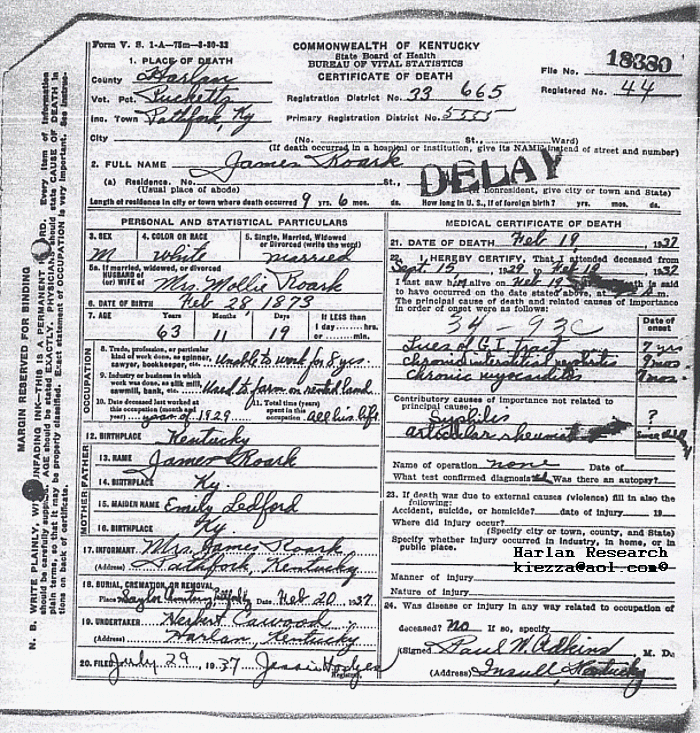 Form V. S. 1-A—75m-8-30-32
COMMONWEALTH OF KENTUCKY
State Board of Health
BUREAU OF VITAL STATISTICS
CERTIFICATE OF DEATH
File No. 18380
Registered No. 44
1. PLACE OF DEATH
County Harlan
Vot. Pct. Pucketts
Inc. Town Pathfork, Ky
Registration District No. 33 665
Primary Registration District No. 5555
City (No. St., Ward)
(If death occurred in a hospital or institution, give its NAME instead of street and number)
2. FULL NAME James Roark
DELAY
(a) Residence. No. St.,
(Usual place of abode) nonresident, give city or town and State)
Length of residence in city or town where death occurred 9 yrs. 6 mos. ds. How long in U. S., if of foreign birth? yrs. mos. ds.
PERSONAL AND STATISTICAL PARTICULARS
3. SEX M
4. COLOR OR RACE white
5. Single, Married, Widowed or Divorced (write the word) married
5a. If married, widowed, or divorced
HUSBAND of
(or) WIFE of Mrs. Mollie Roark
6. DATE OF BIRTH Feb 28 1873
7. AGE Years 63 Months 11 Days 19 If LESS than 1 day hrs. or min.
OCCUPATION
8. Trade, profession, or particular kind of work done, as spinner, sawyer, bookkeeper, etc. Unable to work for 8 yrs.
9. Industry or business in which work was done, as silk mill, sawmill, bank, etc. Used to farm on rented land
10. Date deceased last worked at this occupation (month and year) year of 1929
11. Total time (years) spent in this occupation all his life
12. BIRTHPLACE Kentucky
FATHER
13. NAME James Roark
14. BIRTHPLACE Ky.
MOTHER
15. MAIDEN NAME Emily Ledford
16. BIRTHPLACE Ky
17. INFORMANT Mrs. James Roark
(Address) Pathfork, Kentucky
18. BURIAL, CREMATION, OR REMOVAL
Place Saylor Date Feb 20 1937
19. UNDERTAKER Herbert Cawood
(Address) Harlan Kentucky
20. FILED July 29, 1937 Jessie Hodges
Registrar.
MEDICAL CERTIFICATE OF DEATH
21. DATE OF DEATH Feb 19, 1937
22. I HEREBY CERTIFY, That I attended deceased from
Sept. 15, 1929 to Feb 19, 1937
I last saw him alive on Feb 19 death is said
to have occurred on the date stated above, at m.
The principal cause of death and related causes of importance in order of onset were as follows:
Date of onset
34 - 93C
Lues of G.I. tract 7 yrs
chronic interstitial nephritis 9 mos
chronic myocarditis
Contributory causes of importance not related to principal cause:
Syphilis ?
articular rheumat
Name of operation none Date of
What test confirmed diagnosis? Was there an autopsy?
23. If death was due to external causes (violence) fill in also the following:
Accident, suicide, or homicide? date of injury 19
Where did injury occur?
(Specify city or town, county, and State)
Specify whether injury occurred in industry, in home, or in public place.
Harlan Research
kiezza@aol.com©
Manner of injury
Nature of injury
24. Was disease or injury in any way related to occupation of deceased? No If so, specify
(Signed Paul W. Adkins, M. D.
(Address) Insull, Kentucky
MARGIN RESERVED FOR BINDING
N. B. WRITE PLAINLY, WITH UNFADING INK—THIS IS A PERMANENT RECORD. Every item of information
should be carefully supplied. AGE should be stated EXACTLY. PHYSICIANS should state CAUSE OF DEATH in
plain terms, so that it may be properly classified. Exact statement of OCCUPATION is very important. See instruc-
tions on back of certificate.